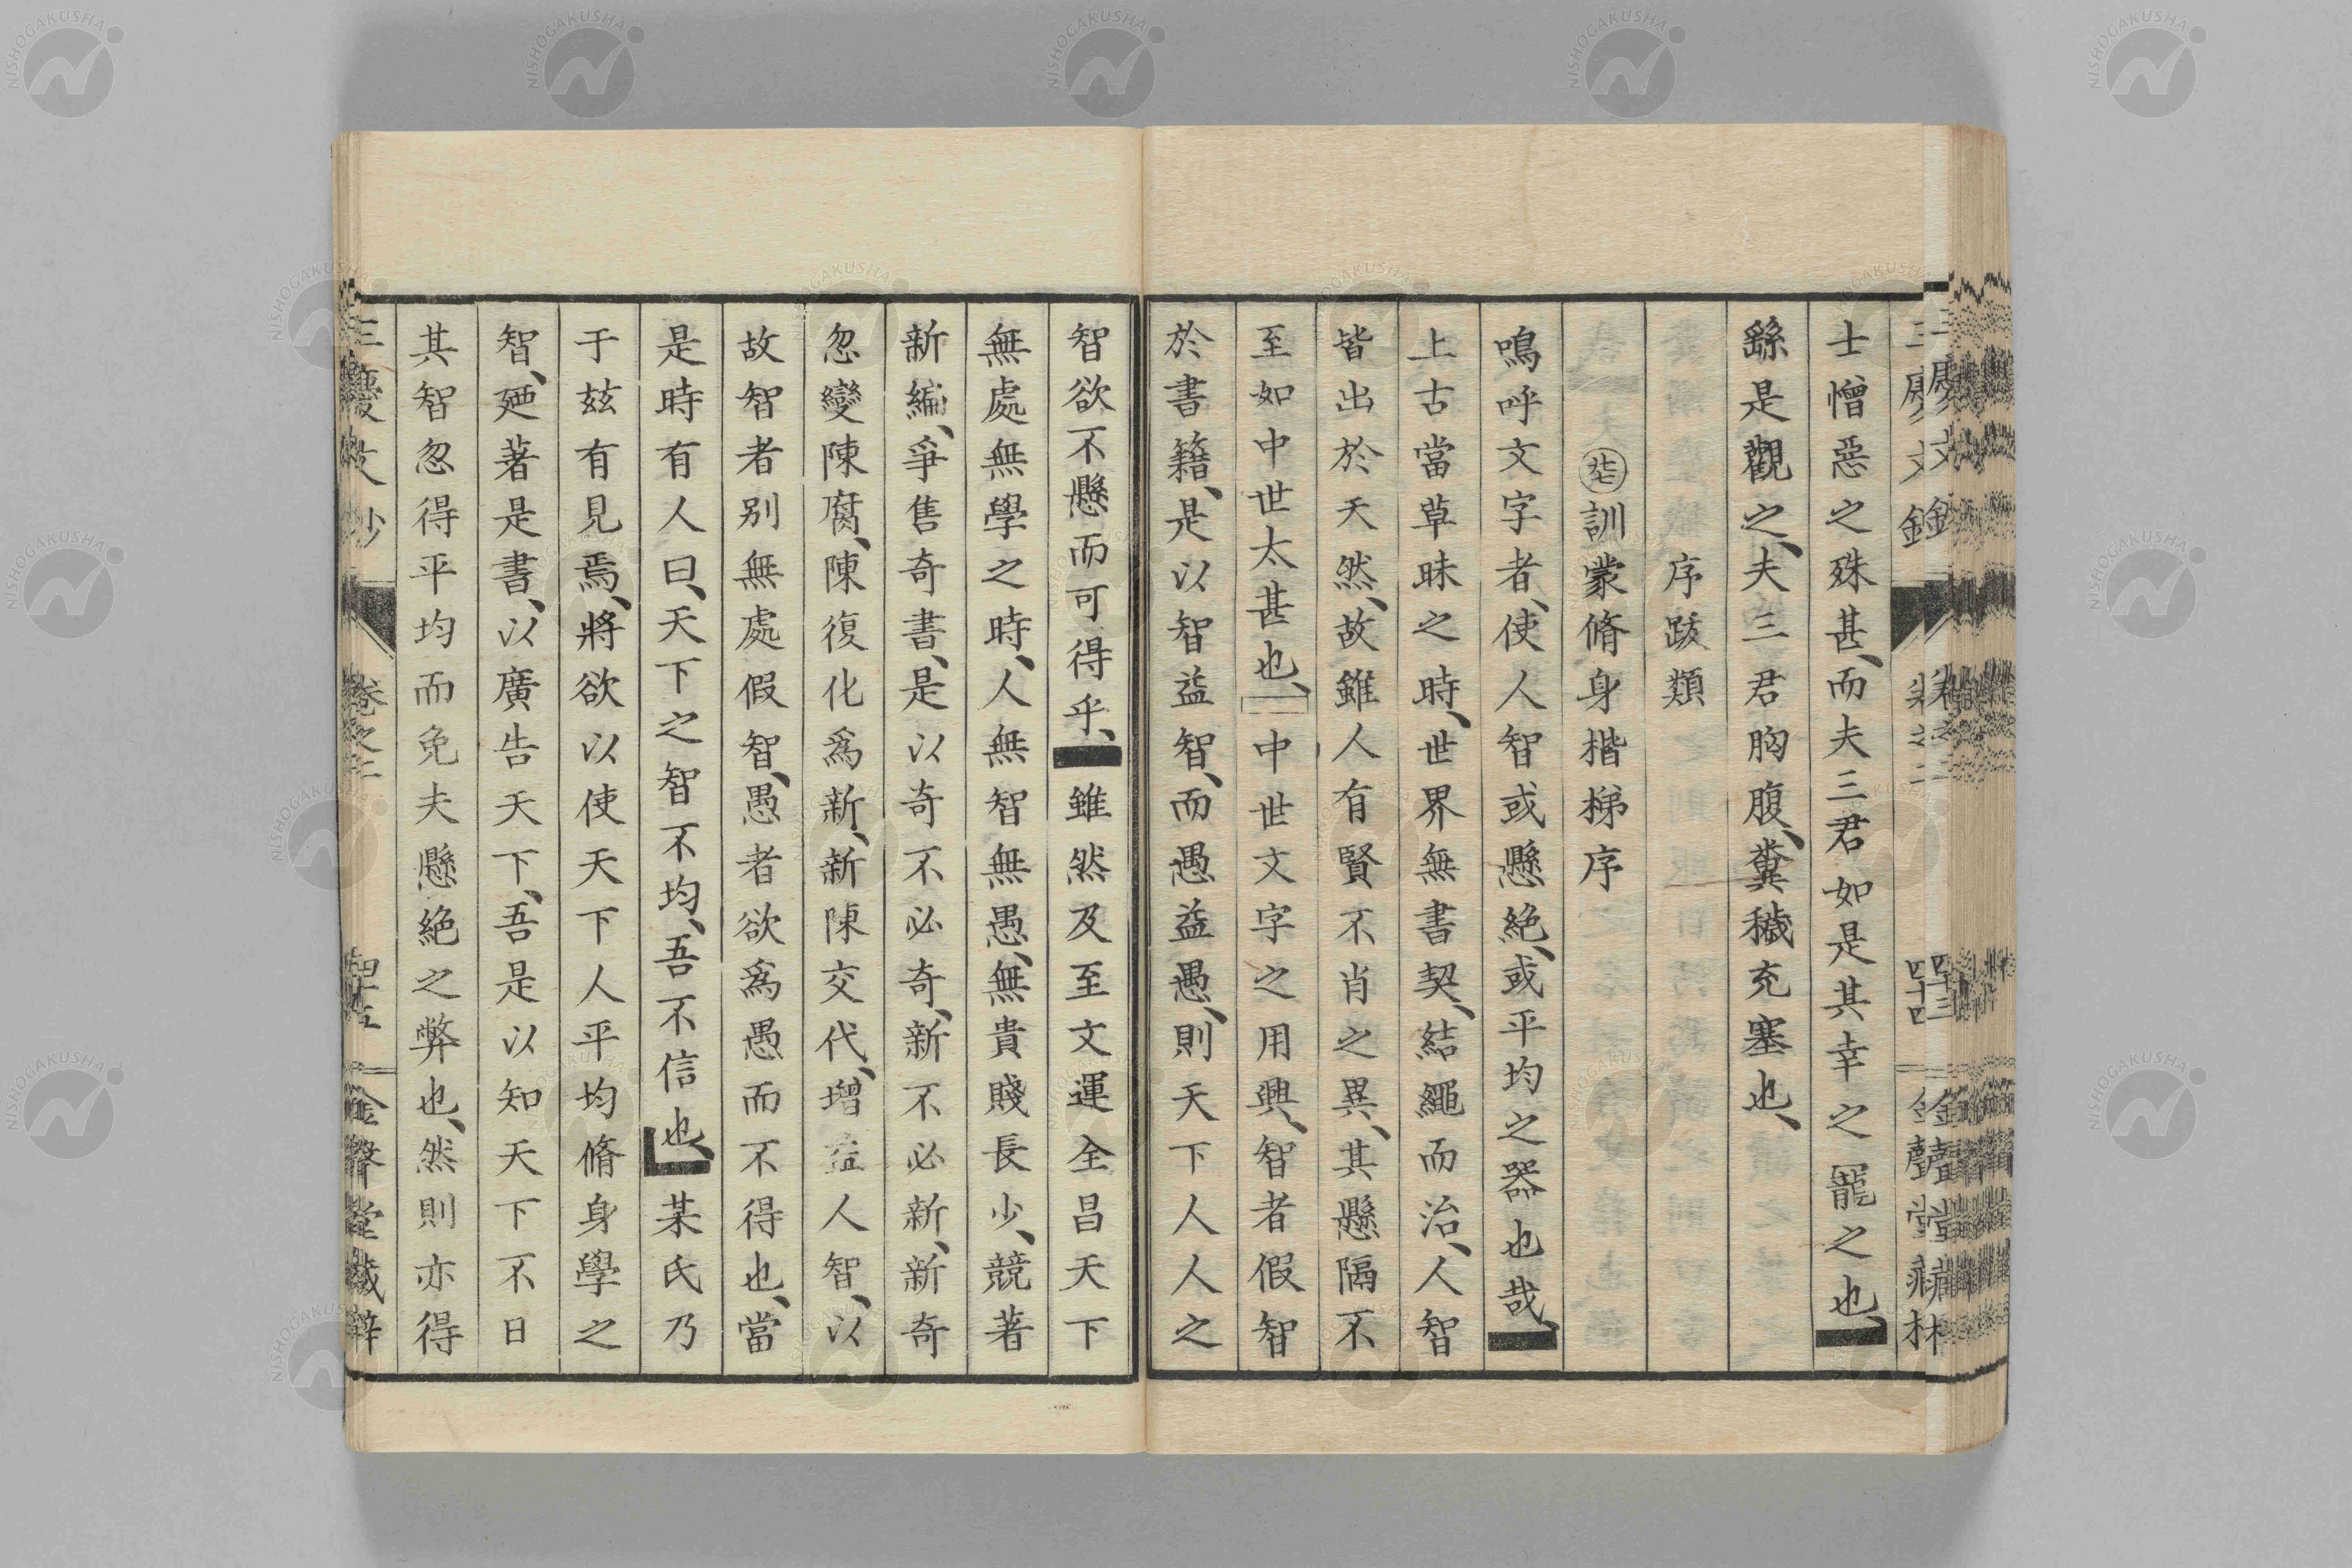 士憎惡之殊甚、而夫三君如是其幸之寵之也、
繇是觀之、夫三君胸腹、糞穢充塞也、
序跋類
㊆訓蒙脩身楷梯序
鳴呼文字者、使人智或懸絶、或平均之器也哉、
上古當草昧之時、世界無書契、結繩而治、人智
皆出於天然、故雖人有賢不肖之異、其懸隔不
至如中世太甚也、中世文字之用興、智者假智
於書籍、是以智益智、而愚益愚、則天下人人之
智欲不懸而可得乎、雖然及至文運全昌天下
無處無學之時、人無智無愚、無貴賤長少、競著
新編、爭售奇書、是以奇不必奇、新不必新、新奇
忽變陳腐、陳腐復化爲新、新陳交代、增益人智、以
故智者別無處假智、愚者欲爲愚而不得也、當
是時有人曰、天下之智不均、吾不信也、某氏乃
于玆有見焉、將欲以使天下人平均脩身學之
智、廼著是書、以廣告天下、吾是以知天下不日
其智忽得平均而免夫懸絶之弊也、然則亦得
卷之二
四十五
金聲堂